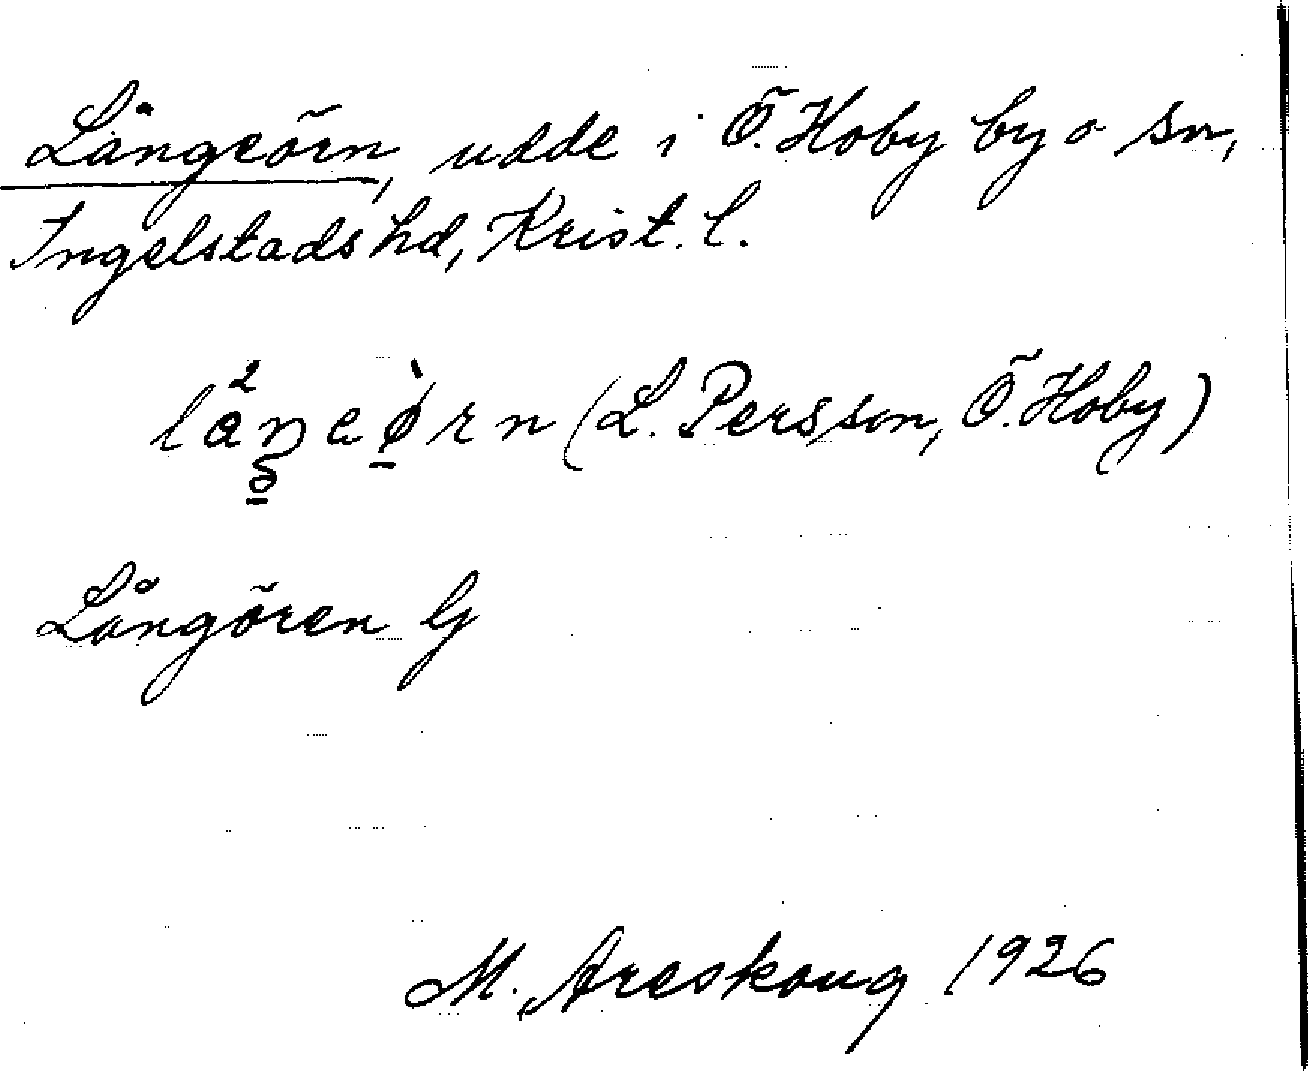 Långeörn, udde i Ö. Hoby by o sn,
Ingelstads hd, Krist. l.
(L. Persson, Ö. Hoby)
Långören G
M. Areskoug 1926